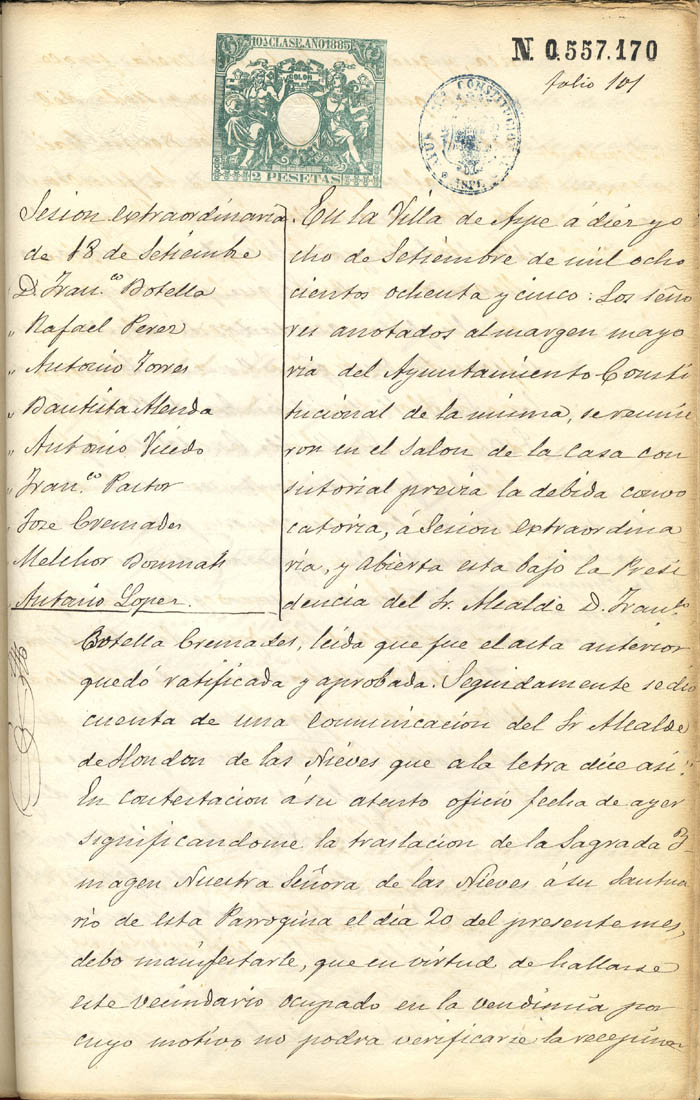 10ª CLASE. AÑO 1885
2 PESETAS
N 0.557.170
folio 101
CONSTITUCION
Sesion extraordinaria
de 18 de Setiembre
D. Fran.co Botella
" Rafael Perez
" Antonio Torres
" Bautista Alenda
" Antonio Vicedo
" Fran.co Pastor
" Jose Cremades
" Melchor Bonmati
Antonio Lopez.
En la Villa de Aspe á diez yo
cho de Setiembre de mil ocho
cientos ochenta y cinco: Los seño
res anotados al margen mayo
ria del Ayuntamiento Consti
tucional de la misma, se reunie
ron en el Salon de la Casa con
sistorial previa la debida convo
catoria, á Sesion extraordina
ria, y abierta esta bajo la Presi
dencia del Sr. Alcalde D. Fran.co
Botella Cremades, leida que fue el acta anterior
quedó ratificada y aprobada. Seguidamente se dió
cuenta de una comunicacion del Sr Alcalde
de Hondon de las Nieves que a la letra dice asi "
En contestacion á su atento oficio fecha de ayer
significandome la traslacion de la Sagrada Y-
magen Nuestra Señora de las Nieves á su Santua
rio de esta Parroquia el dia 20 del presente mes,
debo manifestarle, que en virtud de hallarse
este vecindario ocupado en la vendimia por
cuyo motivo no podra verificarse la recepcion